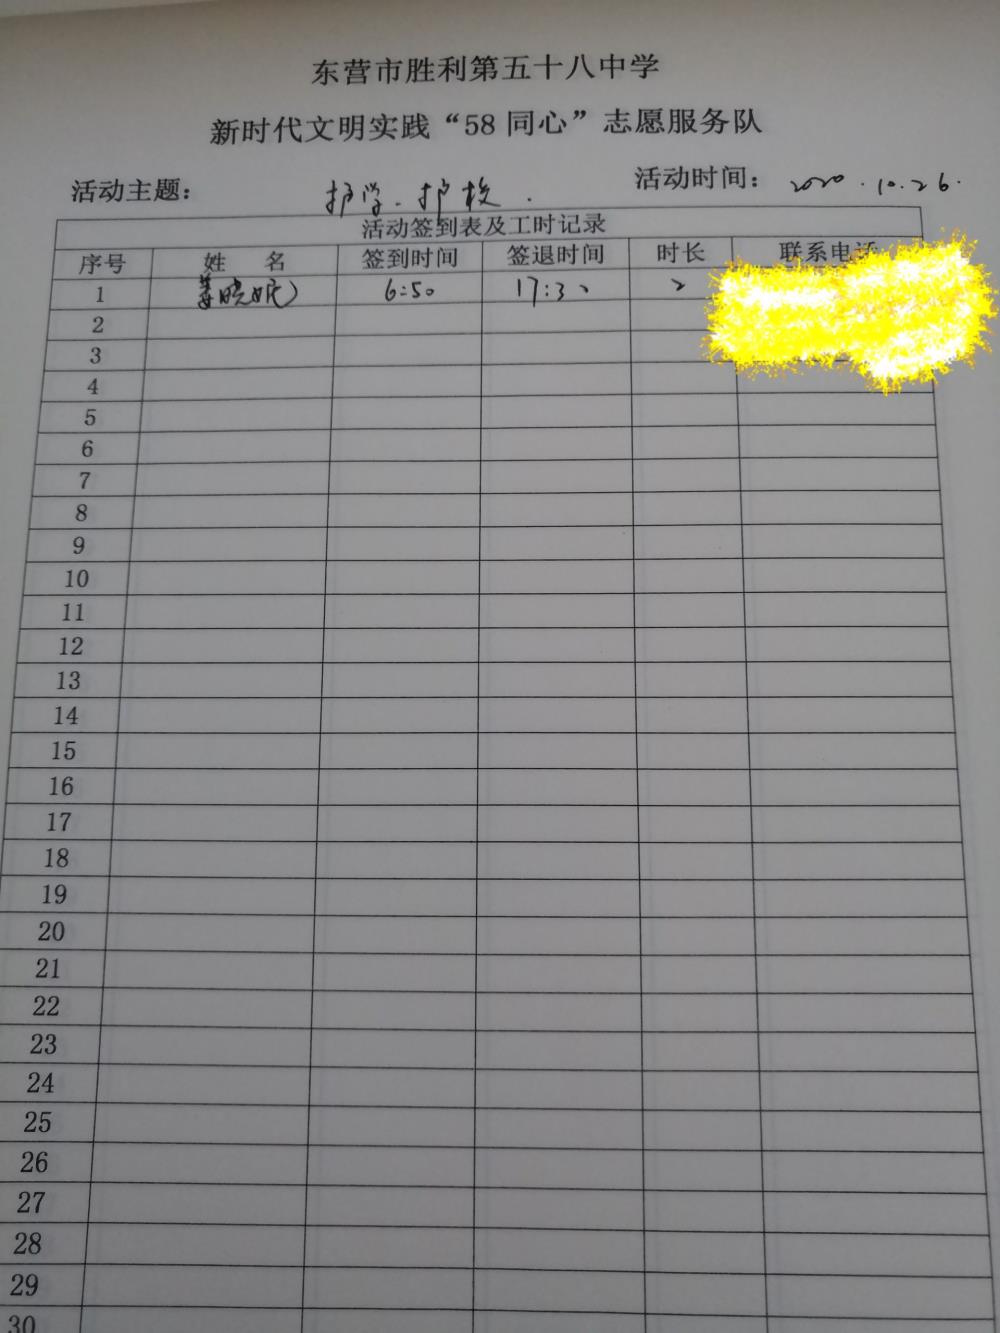 东营市胜利第五十八中学
新时代文明实践“58 同心”志愿服务队
活动主题： 护学．护校． 活动时间： 2020.10.26.
活动签到表及工时记录
序号 姓 名 签到时间 签退时间 时长 联系电话
1 姜晓妮 6:50 17:30 2
2
3
4
5
6
7
8
9
10
11
12
13
14
15
16
17
18
19
20
21
22
23
24
25
26
27
28
29
30